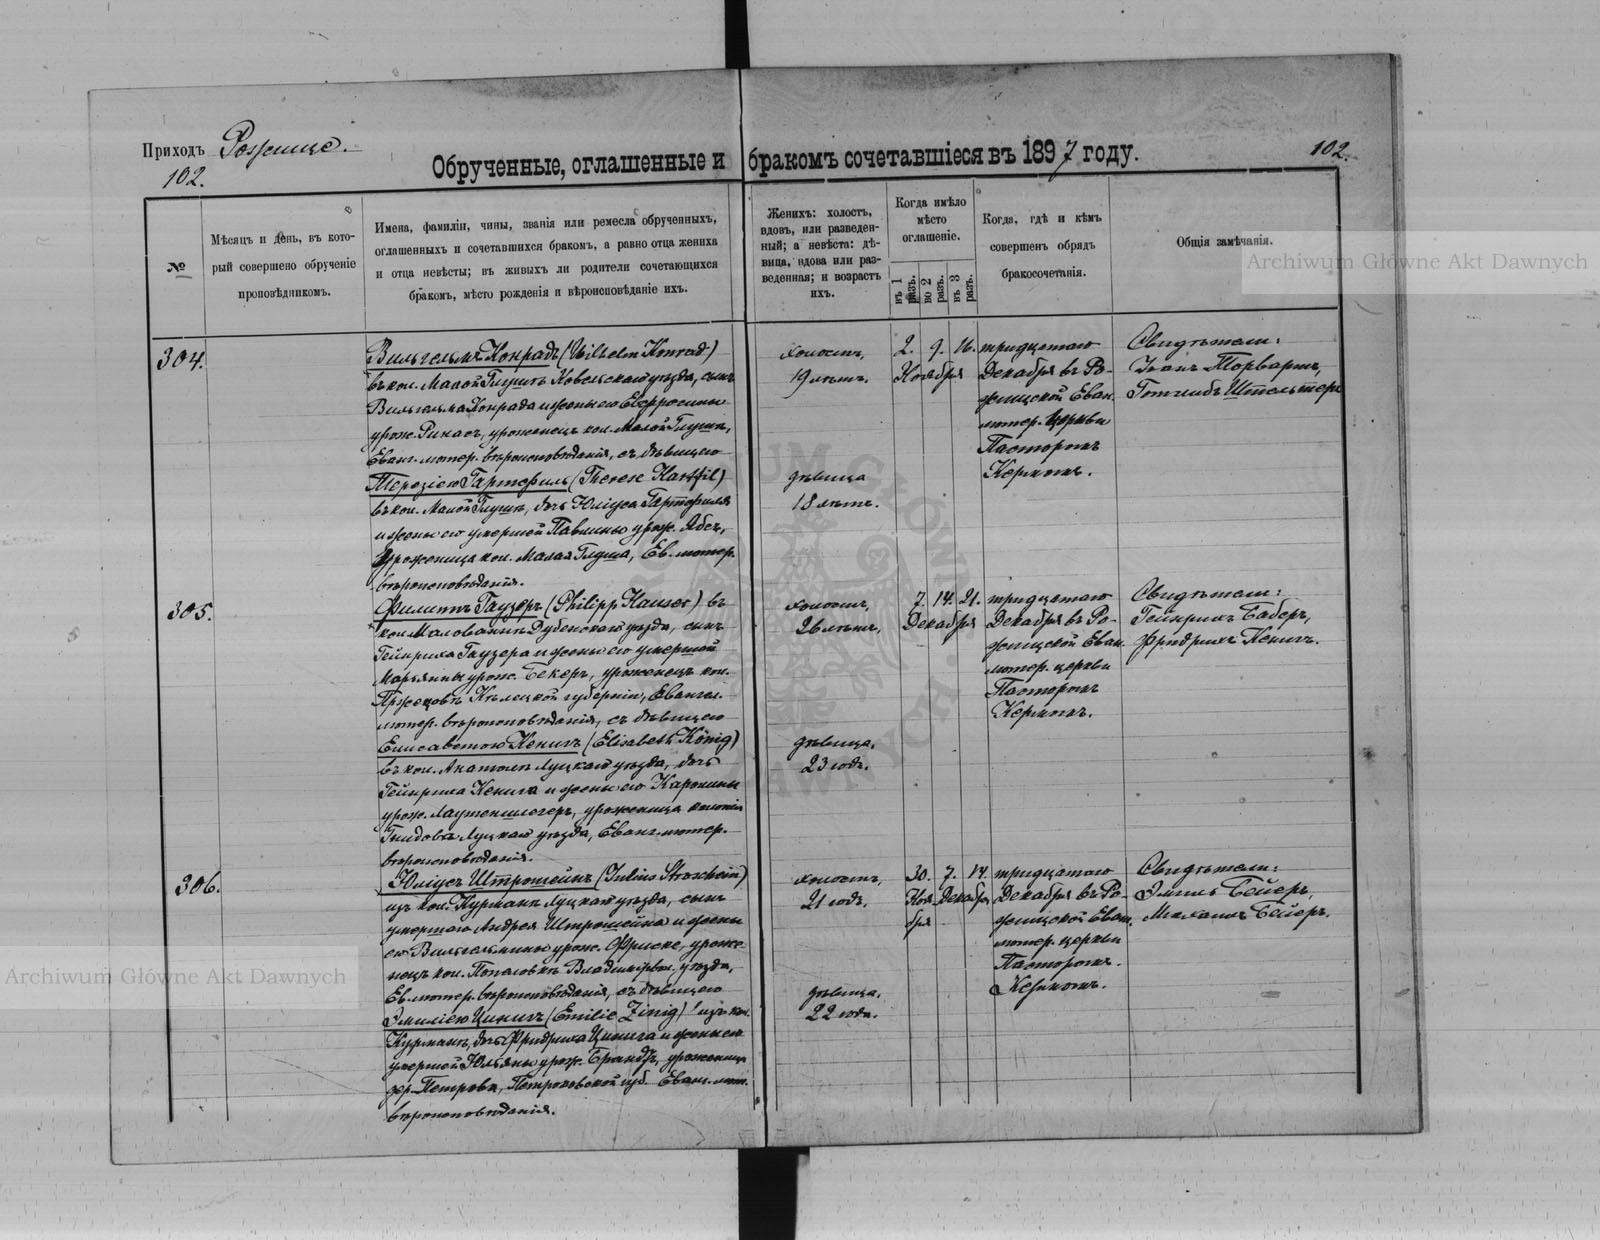 Приходъ Рожище.
102.
Обрученные, оглашенные и бракомъ сочетавшіеся въ 1897 году.
102.
№
Мѣсяцъ и день, въ кото-
рый совершено обрученіе
проповѣдникомъ.
Имена, фамиліи, чины, званія или ремесла обрученныхъ,
оглашенныхъ и сочетавшихся бракомъ, а равно отца жениха
и отца невѣсты; въ живыхъ ли родители сочетающихся
бракомъ, мѣсто рожденія и вѣроисповѣданіе ихъ.
Женихъ: холостъ,
вдовъ, или разведен-
ный; а невѣста: дѣ-
вица, вдова или раз-
веденная; и возрастъ
ихъ.
Когда имѣло
мѣсто
оглашеніе.
въ 1 разъ.
во 2 разъ.
въ 3 разъ.
Когда, гдѣ и кѣмъ
совершенъ обрядъ
бракосочетанія.
Общія замѣчанія.
304.
Вильгельмъ Конрадъ (Wilhelm Konrad)
въ кол. Малой Глушѣ Ковельскаго уѣзда, сынъ
Вильгельма Конрада и жены его Евфросины
урож. Ринасъ, уроженецъ кол. Малой Глуши,
Еванг. лютер. вѣроисповѣданія, съ дѣвицею
Терезіею Гартфиль (Therese Hartfil)
въ кол. Малой Глушѣ, дочь Юліуса Гартфиля
и жены его умершей Павлины урож. Абсъ,
уроженица кол. Малая Глуша, Ев. лютер.
вѣроисповѣданія.
холостъ,
19 лѣтъ.
дѣвица
18 лѣтъ.
2. 9. 16.
Ноября
тридцатаго
Декабря въ Ро-
жищской Еван.
лютер. церкви
Пасторомъ
Керммъ.
Свидѣтели:
Іоанъ Торвартъ,
Готлибъ Штельтеръ
305.
Филиппъ Гаузеръ (Philipp Hauser) въ
кол. Малованкѣ Дубенскаго уѣзда, сынъ
Гейнриха Гаузера и жены его умершой
Марьянны урож. Бекеръ, уроженецъ кол.
Пржецовъ Кѣлецкой губерніи, Евангел.
лютер. вѣроисповѣданія, съ дѣвицею
Елисаветою Кенигъ (Elisabeth König)
въ кол. Анатоліи Луцкаго уѣзда, дочь
Гейнриха Кенига и жены его Каролины
урож. Лаутеншлегеръ, уроженица колоніи
Гнидова Луцкаго уѣзда, Еванг. лютер.
вѣроисповѣданія.
холостъ,
26 лѣтъ,
дѣвица,
23 годъ.
7. 14. 21.
Декабря
тридцатаго
Декабря въ Ро-
жищской Еван.
лютер. церкви
Пасторомъ
Керммъ.
Свидѣтели:
Гейнрихъ Баберъ,
Фридрихъ Кенигъ.
306.
Юліусъ Штрошейнъ (Julius Stroschein)
изъ кол. Курманъ Луцкаго уѣзда, сынъ
умершаго Андрея Штрошейна и жены
его Вильгельмины урож. Фриске, уроже-
нецъ кол. Попаловка Владимірвол. уѣзда,
Ев. лютер. вѣроисповѣданія, съ дѣвицею
Эмиліею Цинигъ (Emilie Zinig) изъ кол.
Курманъ, дочь Фридриха Цинига и жены его
умершей Юльяны урож. Брандтъ, уроженица
дер. Петрова, Петроковской губ. Еванг. лют.
вѣроисповѣданія.
холостъ,
21 годъ,
дѣвица,
22 года.
30. 7. 14.
Ноя- Декабря
бря
тридцатаго
Декабря въ Ро-
жищской Еван.
лютер. церкви
Пасторомъ
Керммъ.
Свидѣтели:
Эмиль Бейеръ,
Михаилъ Бейеръ.
Archiwum Główne Akt Dawnych
Archiwum Główne Akt Dawnych